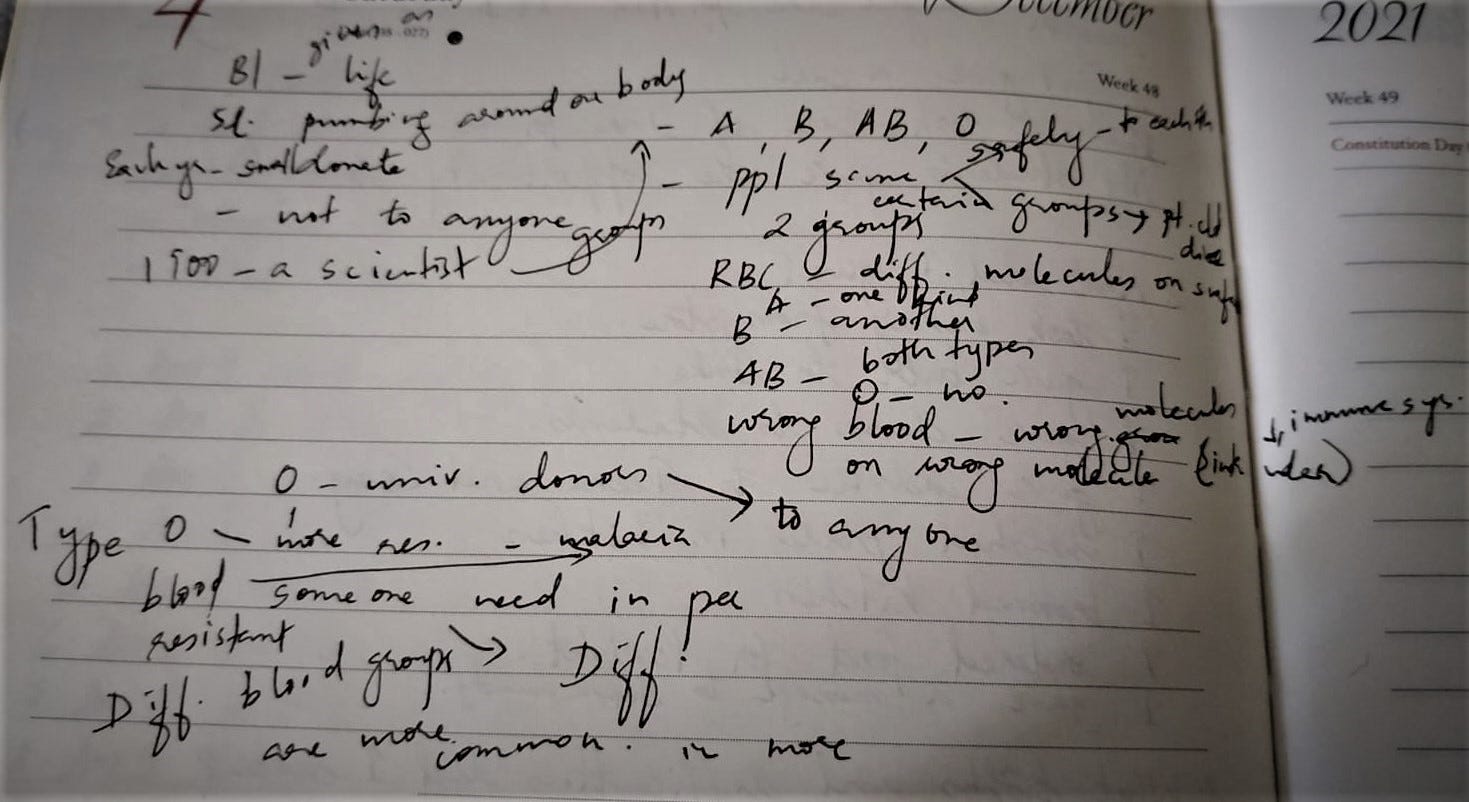 4
December
2021
Week 48
Week 49
Constitution Day
Bl - given on life
Sl. pumbing around on body
Each yr - small donate
- not to anyone
groups
1900 - a scientist
- A, B, AB, O
safely - to each
- ppl same
certain groups → pt. cld
die
2 groups
RBC - diff. molecules on surfa
A - one kind
B - another
AB - both types
O - no.
wrong blood - wrong molecules
↓, immune sys.
on wrong molecule
O - univ. donors → to anyone
Type O - more res. - malaria
blood someone need in
resistant
Diff. blood groups → Diff!
are more common. in more